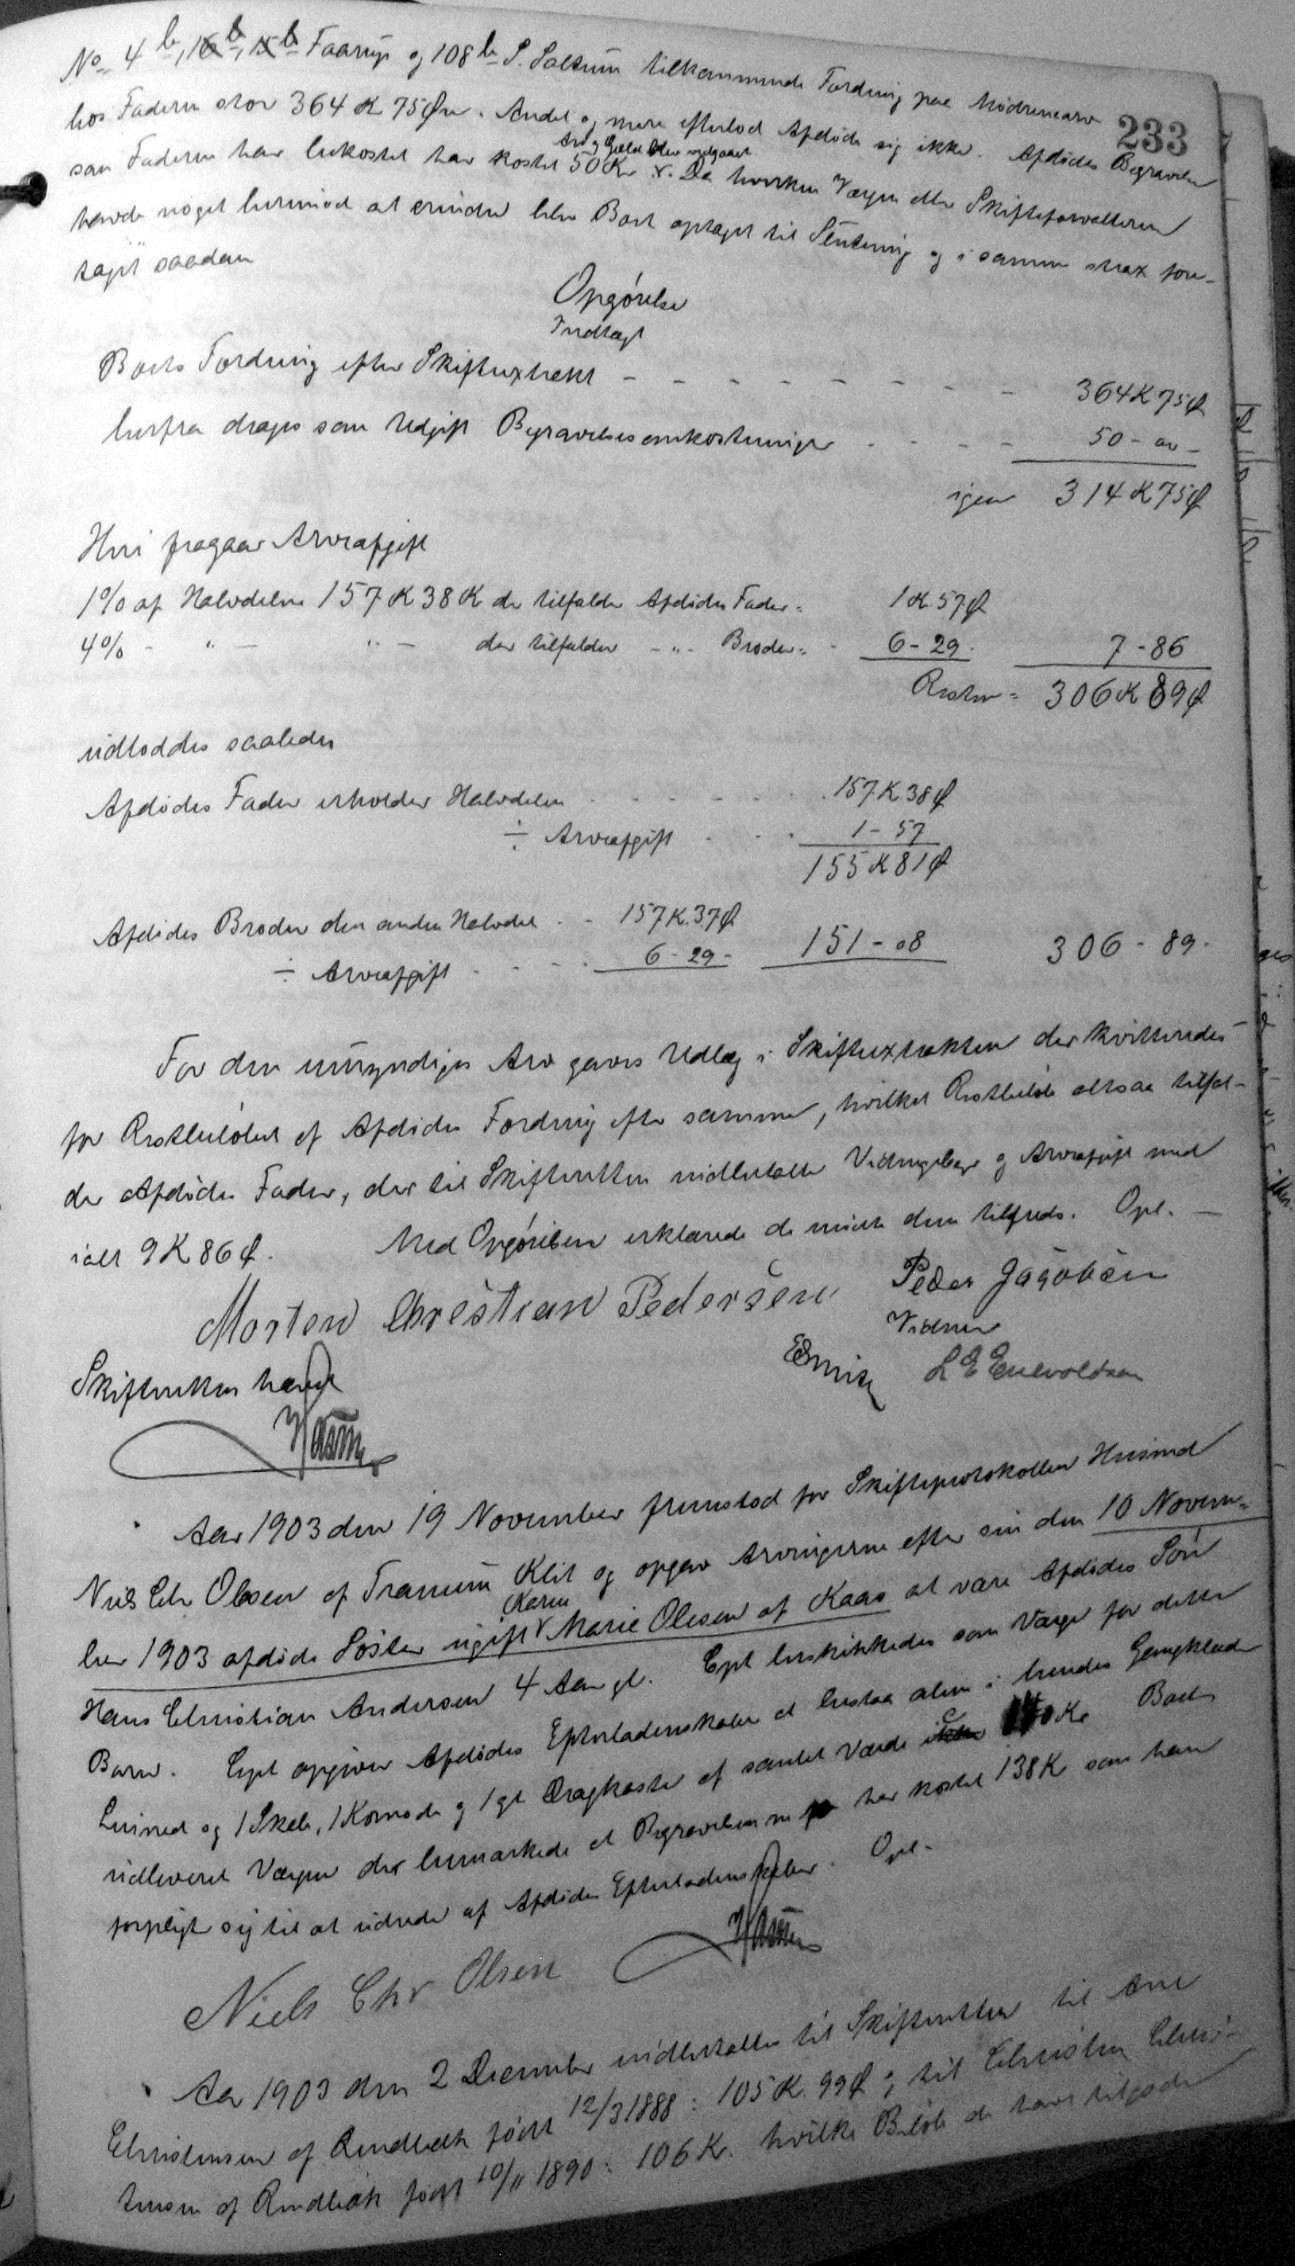 No 4 b, 16 b, 15 b Faarup og 108 b S. Saltum tilkommende Fordring paa Mødrenearv
233
hos Faderen stor 364 K 75 Øre. Andet og mere efterlod Afdøde sig ikke. Afdødes Begravelse
Arv og Gæld blev vedgaaet
som Faderen har bekostet har kostet 50 Kr v. Da hverken Værgen eller Skifteforvalteren
havde noget herimod at erindre blev Boet optaget til Slutning og i samme strax fore-
taget saadan
Opgörelse
Indtægt
Boets Fordring efter Skifteextrakt - - - - - - - - - 364 K 75 Ø
herfra drages som Udgift Begravelsesomkostninger - - - - 50 - oo -
igen 314 K 75 Ø
Heri fragaar Arveafgift
1% af Halvdelen 157 K 38 K der tilfalder Afdødes Fader = 1 K 57 Ø
4% - " - " - der tilfalder - " - Broder = - 6 - 29 - 7 - 86
Resten = 306 K 89 Ø
udloddes saaledes
Afdødes Fader erholder Halvdelen - - - - - - 157 K 38 Ø
÷ Arveafgift - - - 1 - 57
155 K 81 Ø
Afdødes Broder den anden Halvdel - - 157 K. 37 Ø
÷ Arveafgift - - - - 6 - 29 - 151 - 08 306 - 89 -
For den umyndiges Arv gaves Udlæg i Skifteextrakten der kvitteredes
for Restbeløbet af Afdødes Fordring efter samme, hvilket Restbeløb altsaa tilfal-
der Afdødes Fader, der til Skifteretten indbetalte Vidnegebyr og Arveafgift med
ialt 9 K 86 Ø. Med Opgörelsen erklærede de mødte dem tilfreds. Opl. -
Morten Chrestian Pedersen Peder Jacobsen
Vidner
L E Enevoldsen
Skifteretten hævet
Aar 1903 den 19 November fremstod for Skifteprotokollen Husmand
Niels Chr Olesen af Tranum Klit og opgav Arvingerne efter sin den 10 Novem-
Karen
ber 1903 afdøde Søster ugift v Marie Olesen af Kaas at være Afdødes Søn
Hans Christian Andersen 4 Aar gl. Cpt beskikkedes som Værge for dette
Barn. Cpt opgiver Afdødes Efterladenskaber at bestaa alene i hendes Gangklæder
Linned og 1 Skab, 1 Komode og 1 gl Dragkiste af samlet Værdi Kr Boet
udleveret Værgen der bemærkede at Begravelsen har kostet 138 K som han
forpligter sig til at udrede af Afdødes Efterladenskaber. Opl. -
Niels Chr Olsen
Aar 1903 den 2 December indbetaltes til Skifteretten til Ane
Christensen af Rendbæk født 12/3 1888 : 105 K. 99 Ø og til Christen Chris-
tensen af Rendbæk født 10/11 1890 : 106 K. hvilke Beløb de have tilgode